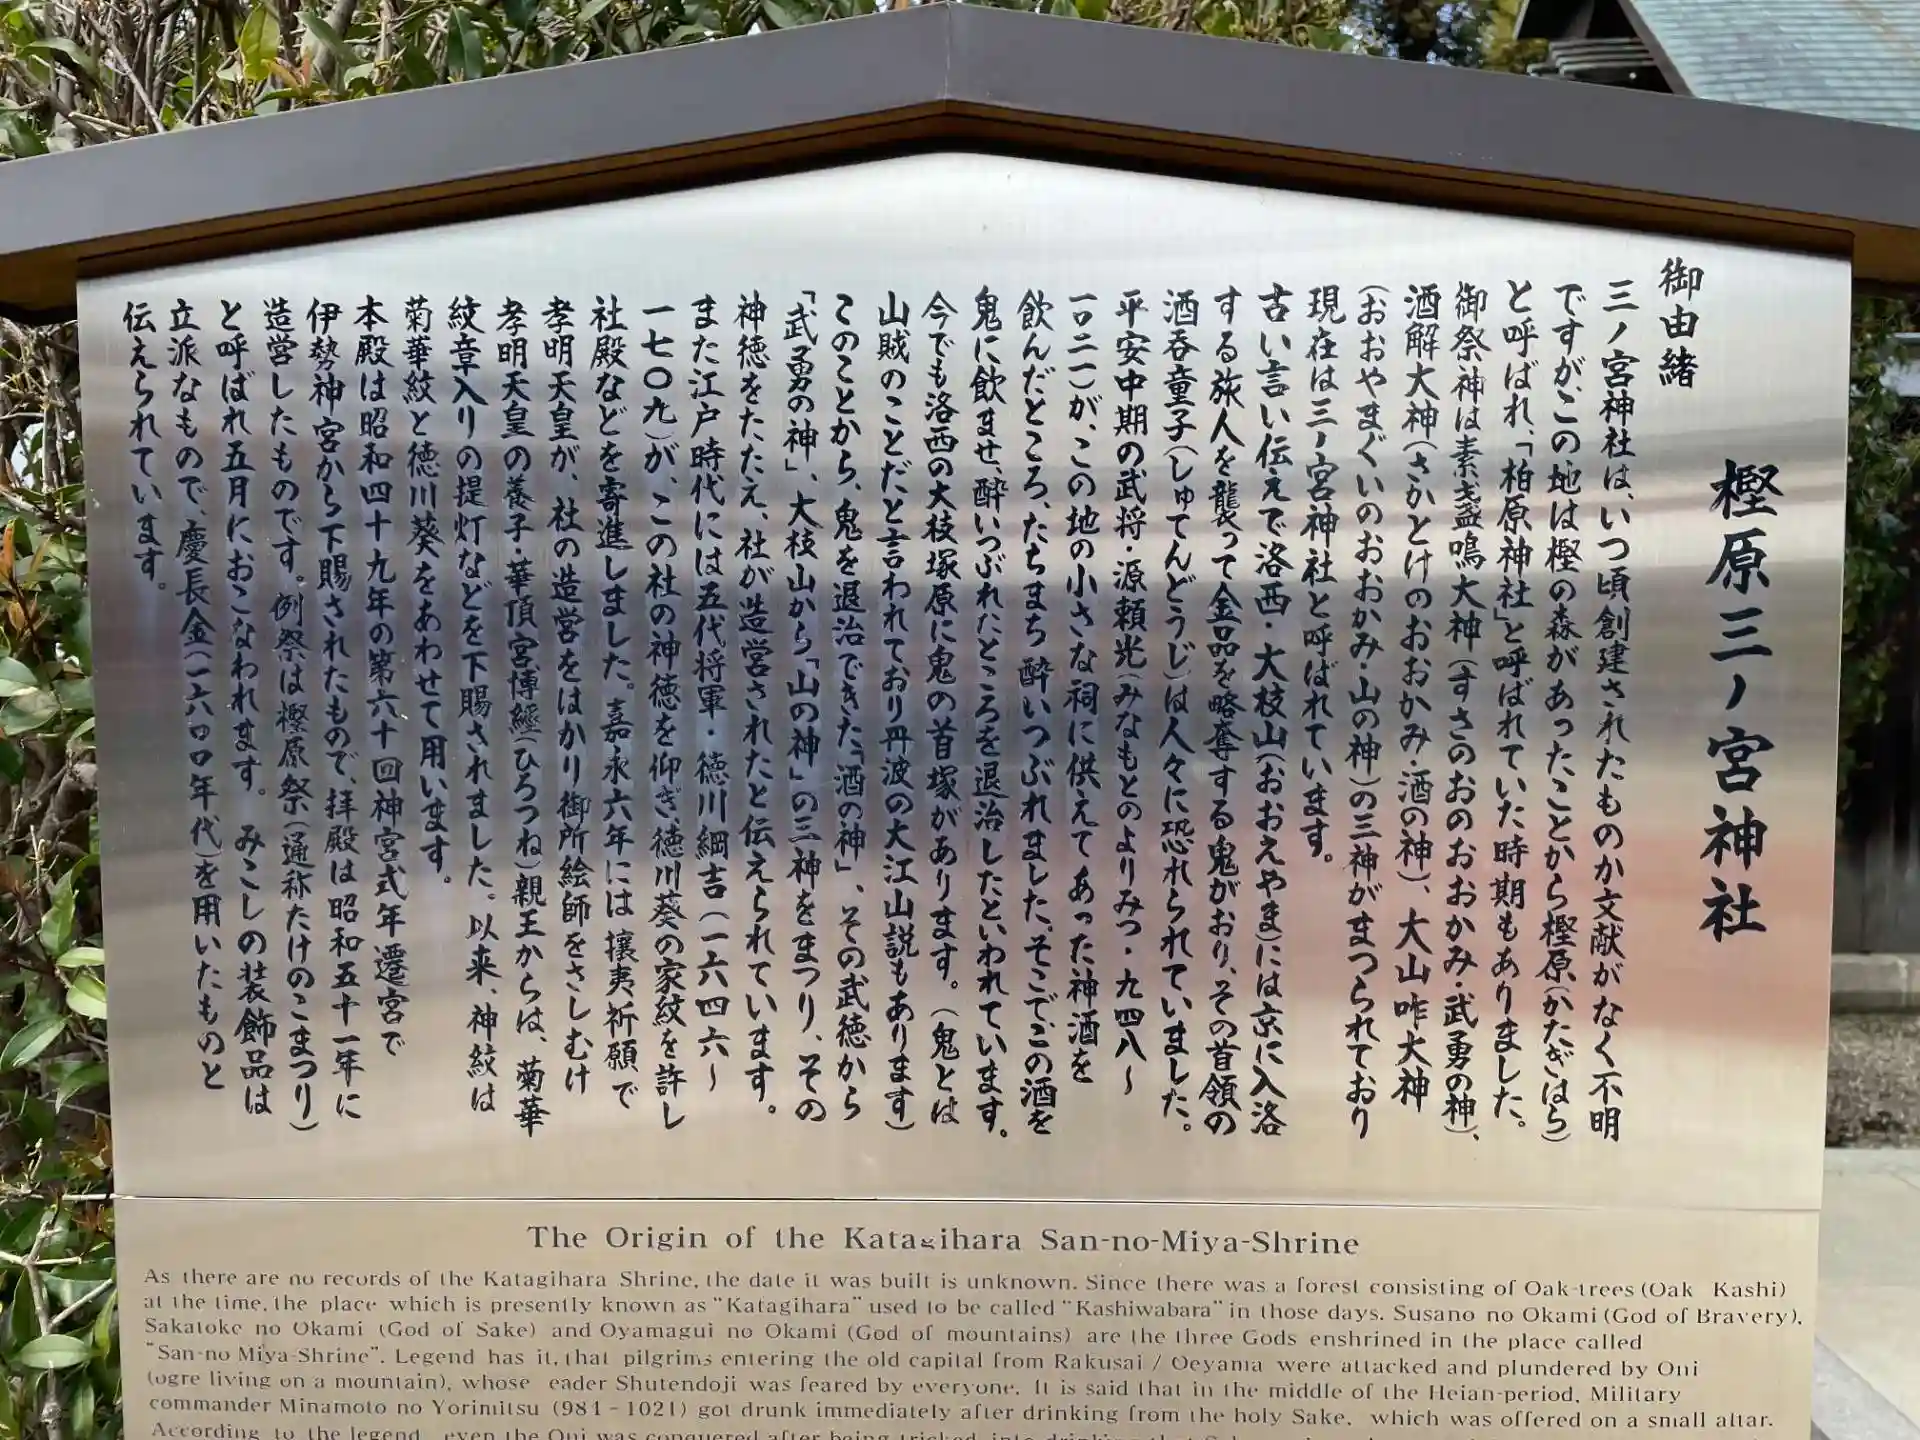 御由緒
樫原三ノ宮神社
三ノ宮神社は、いつ頃創建されたものか文献がなく不明
ですが、この地は樫の森があったことから樫原(かたぎはら)
と呼ばれ、「柏原神社」と呼ばれていた時期もありました。
御祭神は素盞鳴大神(すさのおのおおかみ・武勇の神)、
酒解大神(さかとけのおおかみ・酒の神)、大山咋大神
(おおやまぐいのおおかみ・山の神)の三神がまつられており
現在は三ノ宮神社と呼ばれています。
古い言い伝えで洛西・大枝山(おおえやま)には京に入洛
する旅人を襲って金品を略奪する鬼がおり、その首領の
酒呑童子(しゅてんどうじ)は人々に恐れられていました。
平安中期の武将・源頼光(みなもとのよりみつ・九四八~
一〇二一)が、この地の小さな祠に供えてあった神酒を
飲んだところ、たちまち酔いつぶれました。そこでこの酒を
鬼に飲ませ、酔いつぶれたところを退治したといわれています。
今でも洛西の大枝塚原に鬼の首塚があります。(鬼とは
山賊のことだと言われており丹波の大江山説もあります)
このことから、鬼を退治できた「酒の神」、その武徳から
「武勇の神」、大枝山から「山の神」の三神をまつり、その
神徳をたたえ、社が造営されたと伝えられています。
また江戸時代には五代将軍・徳川綱吉(一六四六~
一七〇九)が、この社の神徳を仰ぎ、徳川葵の家紋を許し
社殿などを寄進しました。嘉永六年には攘夷祈願で
孝明天皇が、社の造営をはかり御所絵師をさしむけ
孝明天皇の養子・華頂宮博經(ひろつね)親王からは、菊華
紋章入りの提灯などを下賜されました。以来、神紋は
菊華紋と徳川葵をあわせて用います。
本殿は昭和四十九年の第六十回神宮式年遷宮で
伊勢神宮から下賜されたもので、拝殿は昭和五十一年に
造営したものです。例祭は樫原祭(通称たけのこまつり)
と呼ばれ五月におこなわれます。みこしの装飾品は
立派なもので、慶長金(一六〇〇年代)を用いたものと
伝えられています。
The Origin of the Katagihara San-no-Miya-Shrine
As there are no records of the Katagihara Shrine, the date it was built is unknown. Since there was a forest consisting of Oak-trees (Oak Kashi)
at the time, the place which is presently known as "Katagihara" used to be called "Kashiwabara" in those days. Susano no Okami (God of Bravery),
Sakatoke no Okami (God of Sake) and Oyamagui no Okami (God of mountains) are the three Gods enshrined in the place called
"San-no Miya-Shrine". Legend has it, that pilgrims entering the old capital from Rakusai / Oeyama were attacked and plundered by Oni
(ogre living on a mountain), whose eader Shutendoji was feared by everyone. It is said that in the middle of the Heian-period, Military
commander Minamoto no Yorimitsu (981 - 1021) got drunk immediately after drinking from the holy Sake, which was offered on a small altar.
According to the legend, even the Oni was conquered after being tricked into drinking that